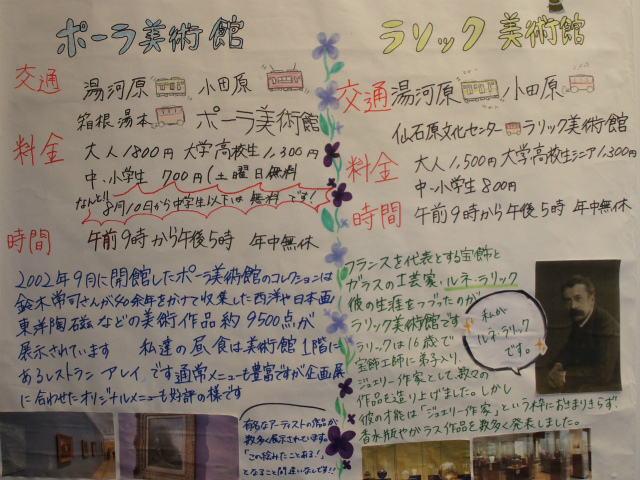 ポーラ美術館
交通 湯河原 小田原
箱根湯本 ポーラ美術館
料金 大人1800円 大学高校生1,300円
中、小学生 700円(土曜日無料)
なんと!8月10日から中学生以下は無料です!
時間 午前9時から午後5時 年中無休
2002年9月に開館したポーラ美術館のコレクションは
鈴木常司さんが40余年をかけて収集した西洋や日本画
東洋陶磁などの美術作品約9500点が
展示されています 私達の昼食は美術館1階に
あるレストラン アレイ です通常メニューも豊富ですが企画展
に合わせたオリジナルメニューも好評の様です
有名なアーティストの作品が
数多く展示されています。
「この絵みたことある!」
となること間違いなしです!!
ラリック美術館
交通 湯河原 小田原
仙石原文化センター ラリック美術館
料金 大人1,500円 大学高校生シニア1,300円
中・小学生800円
時間 午前9時から午後5時 年中無休
フランスを代表とする宝飾と
ガラスの工芸家・ルネ・ラリック
彼の生涯をつづったのが
ラリック美術館です
ラリックは16歳で
宝飾工師に弟子入り、
ジュエリー作家として、数々の
作品を造り上げました。しかし
彼の才能は「ジュエリー作家」という枠におさまりきらず、
香水瓶やガラス作品を数多く発表しました。
私が
ルネ・ラリック
です。